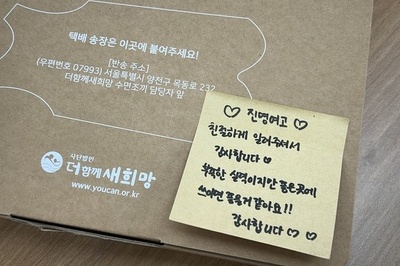 택배 송장은 이곳에 붙여주세요!
[반송 주소]
(우편번호 07993) 서울특별시 양천구 목동로 232
더함께새희망 수면조끼 담당자 앞
사단법인
더함께새희망
www.youcan.or.kr
♡ 진명여고 ♡
친절하게 알려주셔서
감사합니다 ♡
부족한 실력이지만 좋은곳에
쓰이면 좋을거 같아요!!
감사합니다 ♡ ♡